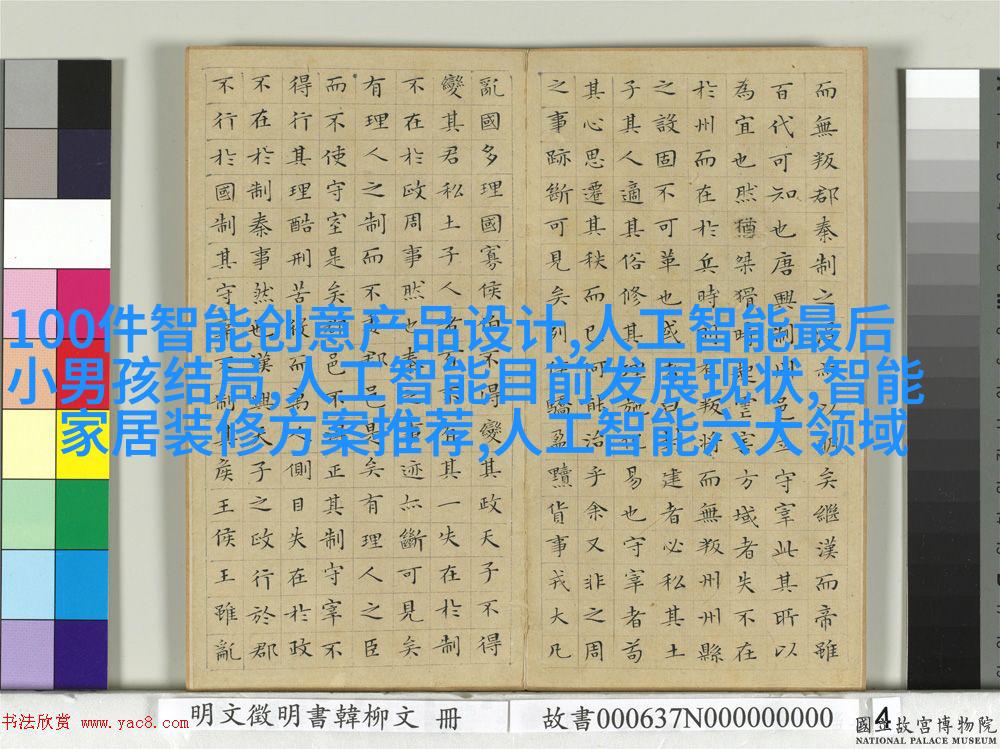 100件智能创意产品设计,人工智能最后
小男孩结局,人工智能目前发展现状,智能
家居装修方案推荐,人工智能六大领域
而無叛郡秦制之得亦以明矣繼漢而帝雖
百代可知也唐興制州邑立守宰此其所以
為宜也然猶桀猾時起虐害方域者失不在
於州而在於兵時則有叛將而無叛州州縣
之設固不可革也或者曰封建者必私其土
子其人適其俗修其理施化易也守宰者苟
其心思遷其秩而已何能治乎余又非之周
之事跡斷可見矣列侯驕盈黷貨事戎大凡
亂國多理國寡侯伯不得變其政天子不得
變其君私土子人者百不有一失在於制
不在於政周事然也秦之事迹亦斷可見矣
有理人之制而不委郡邑是矣有理人之臣
而不使守宰是矣郡邑不得正其制守宰不
得行其理酷刑苦役而萬人側目失在於政
不在於制秦事然也漢興天子之政行於郡
不行於國制其守宰不制其侯王侯王雖亂
明文徵明書韓柳文 冊
故書000637N000000000
4
國立故宮博物院
NATIONAL PALACE MUSEUM
书法欣赏 www.yac8.com